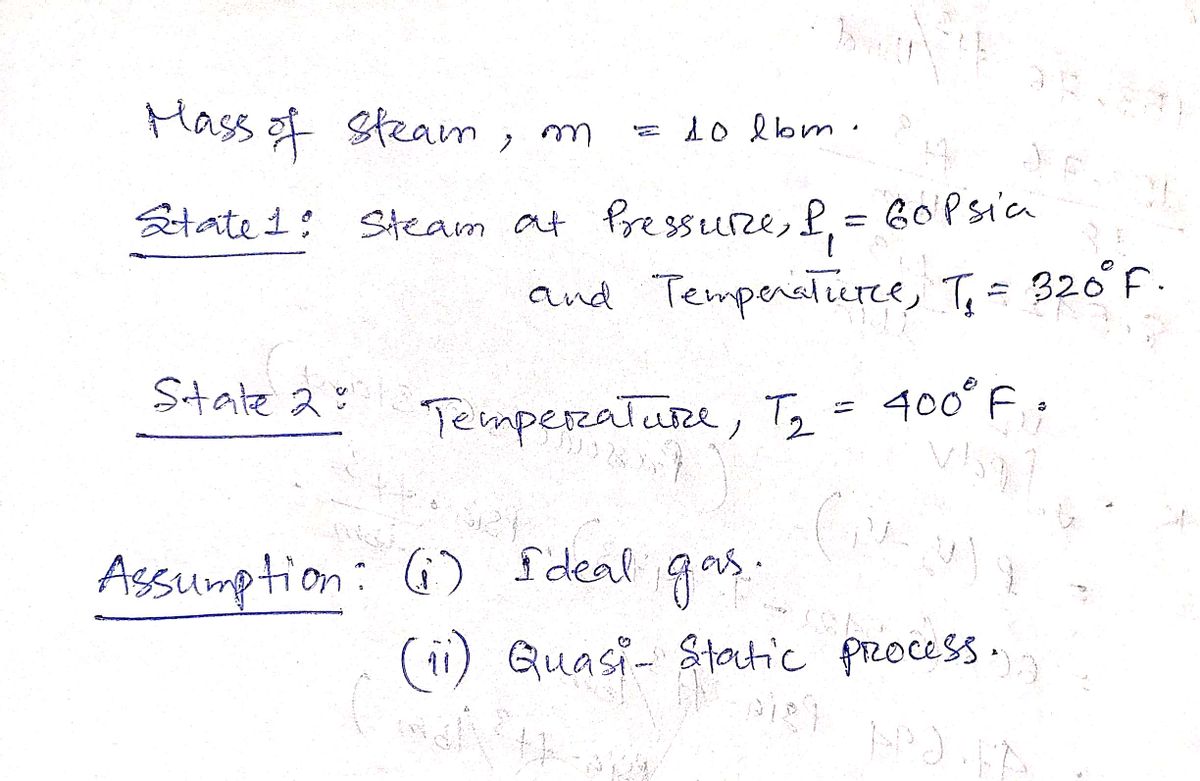 Mass of Steam, m = 10 lbm.
State 1: Steam at Pressure, P₁ = 60 Psia
and Temperature, T₁ = 320°F.
State 2: Temperature, T₂ = 400°F.
Assumption: (i) Ideal gas.
(ii) Quasi-Static process.